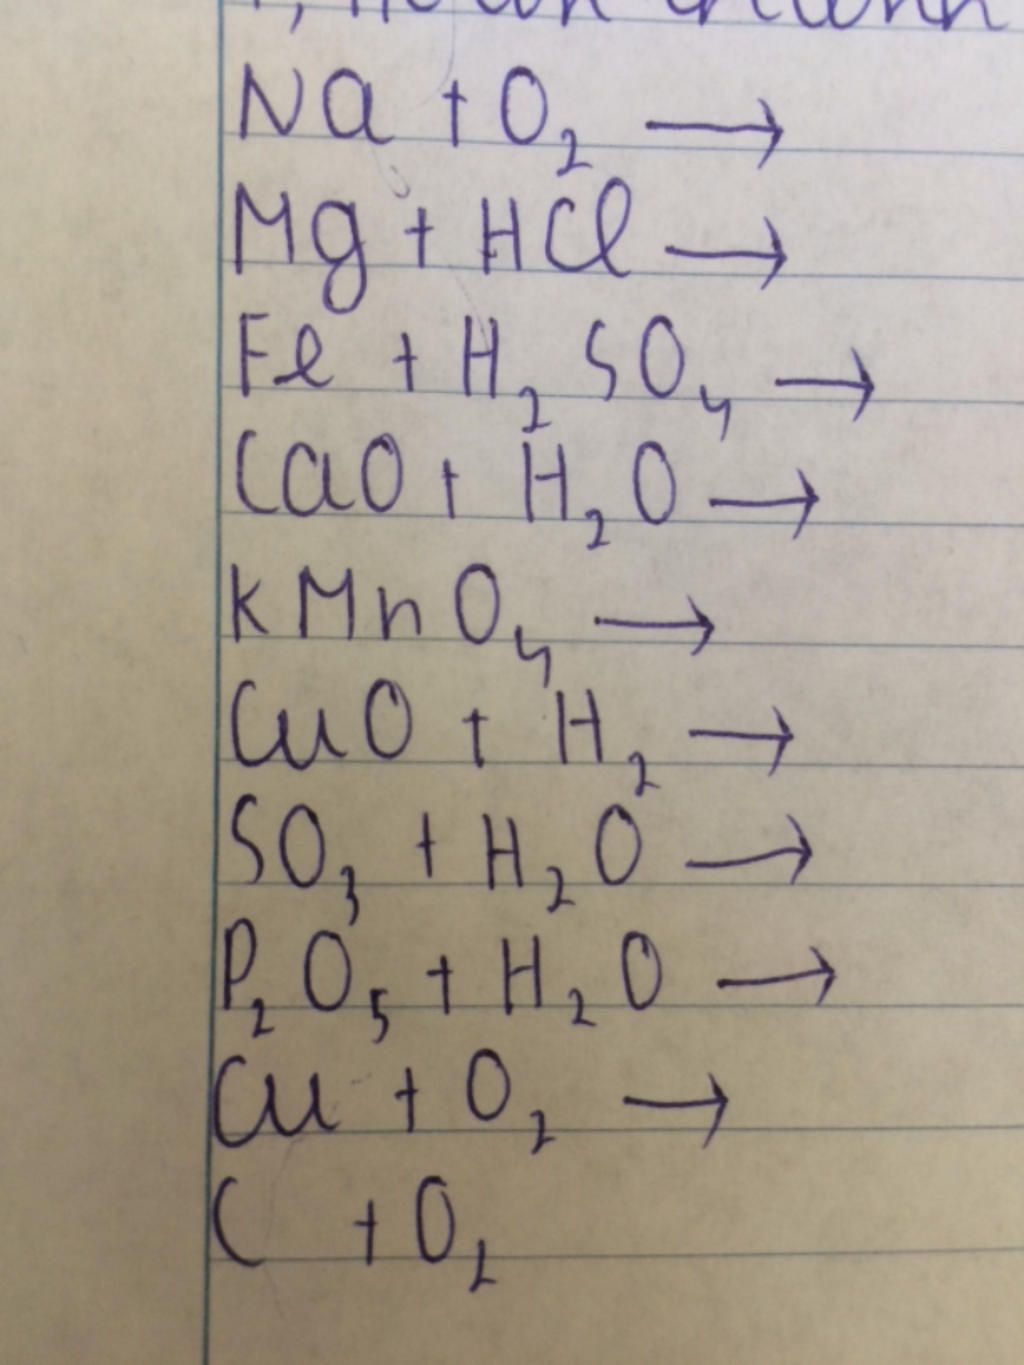 Na + O₂ →
Mg + HCl →
Fe + H₂SO₄ →
CaO + H₂O →
KMnO₄ →
CuO + H₂ →
SO₃ + H₂O →
P₂O₅ + H₂O →
Cu + O₂ →
C + O₂